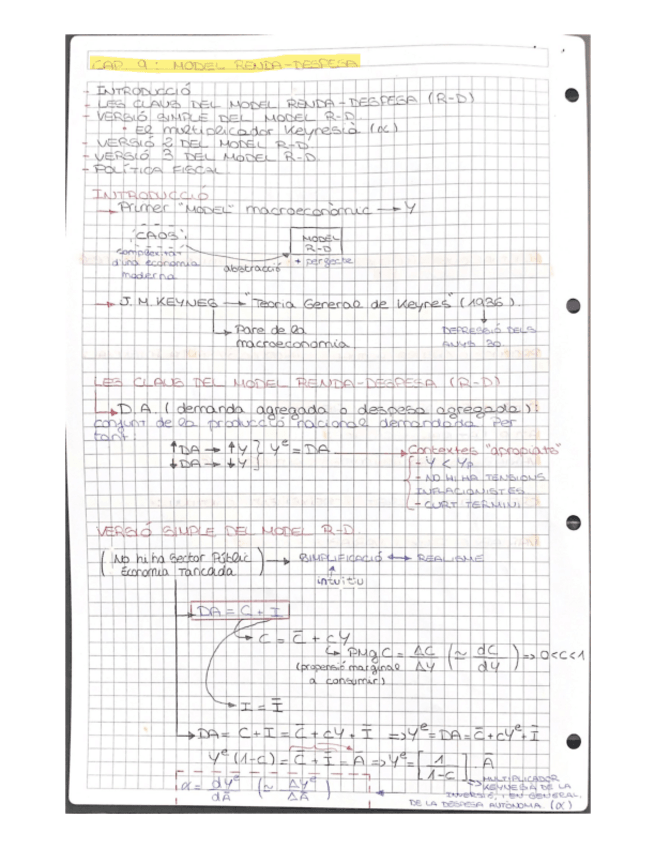 CAP. 9: MODEL RENDA-DESPESA
- INTRODUCCIÓ
- LES CLAUS DEL MODEL RENDA-DESPESA (R-D)
- VERSIÓ SIMPLE DEL MODEL R-D
• El multiplicador Keynesià (α)
- VERSIÓ 2 DEL MODEL R-D.
- VERSIÓ 3 DEL MODEL R-D.
- POLÍTICA FISCAL
INTRODUCCIÓ
→ Primer "MODEL" macroeconòmic → Y
"CAOS"
complexitat d'una economia moderna
abstracció
MODEL R-D
+ perfecte
→ J.M. KEYNES → "Teoria General de Keynes" (1936).
→ Pare de la macroeconomia
DEPRESSIÓ DELS ANYS 30
LES CLAUS DEL MODEL RENDA-DESPESA (R-D)
→ D.A. (demanda agregada o despesa agregada):
conjunt de la producció nacional demandada. Per
tant:
↑DA → ↑Y
↓DA → ↓Y } Yᵉ = DA → Contextes "apropiats"
- Y < Yp
- NO HI HA TENSIONS
INFLACIONISTES
- CURT TERMINI
VERSIÓ SIMPLE DEL MODEL R-D
(No hi ha Sector Públic
Economia Tancada) → SIMPLIFICACIÓ ↔ REALISME
intuïtiu
DA = C + I
→ C = C̄ + cY
→ PMgC = ΔC/ΔY (≃ dC/dY) ⇒ 0<c<1
(propensió marginal
a consumir)
→ I = Ī
→ DA = C + I = C̄ + cY + Ī ⇒ Yᵉ = DA = C̄ + cYᵉ + Ī
Yᵉ (1-c) = C̄ + Ī = Ā ⇒ Yᵉ = [1/(1-c)] · Ā
α = dYᵉ/dĀ (≃ ΔYᵉ/ΔĀ)
MULTIPLICADOR
KEYNESIÀ DE LA
INVERSIÓ, I EN GENERAL,
DE LA DESPESA AUTÒNOMA. (α)